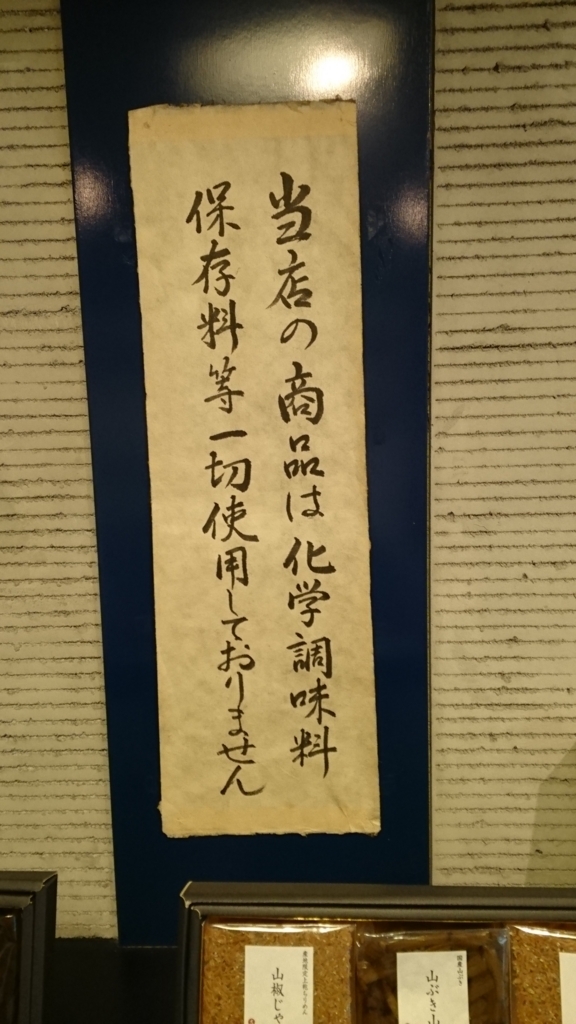 当店の商品は化学調味料
保存料等一切使用しておりません
国産山ぶき
山ぶき山
山椒じゃ